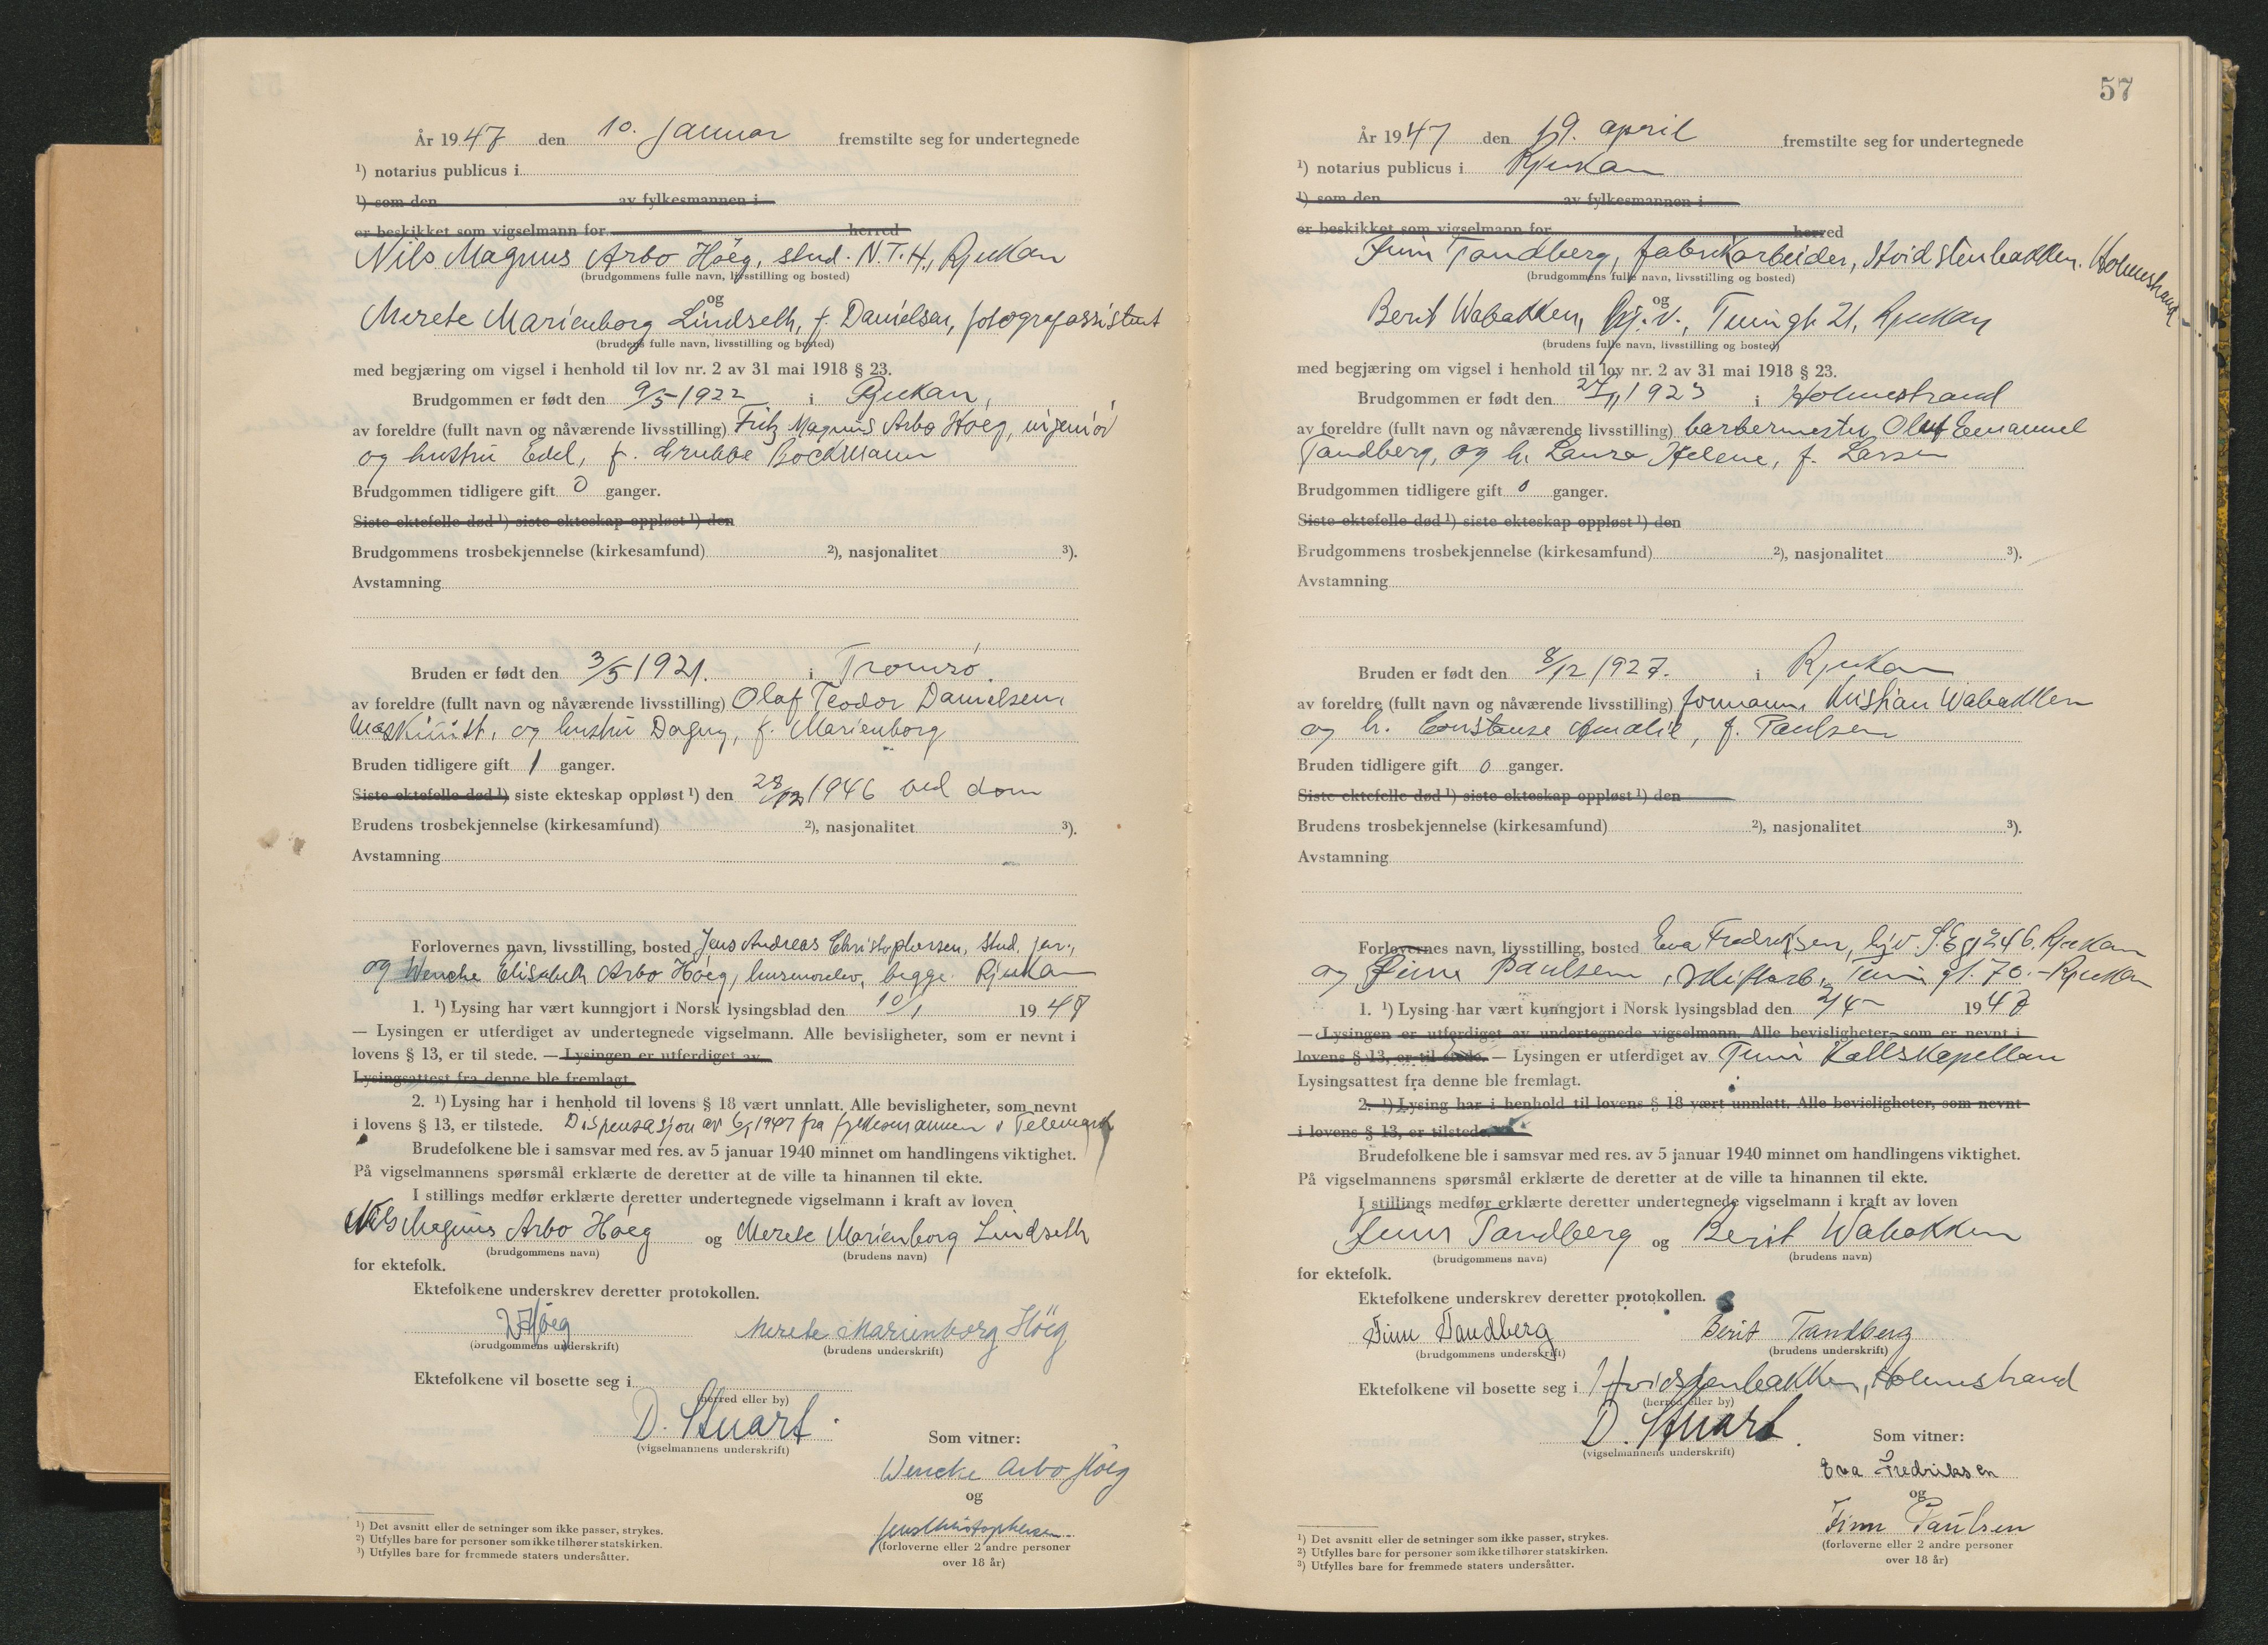 År 1947 den 10. januar fremstilte seg for undertegnede
¹) notarius publicus i
¹) som den av fylkesmannen i
er beskikket som vigselmann for herred
Nils Magnus Arbo Höeg, stud. N.T.H., Rjukan
(brudgommens fulle navn, livsstilling og bosted)
og
Merete Marienborg Lindseth, f. Danielsen, fotografassistent
(brudens fulle navn, livsstilling og bosted)
med begjæring om vigsel i henhold til lov nr. 2 av 31 mai 1918 § 23.
Brudgommen er født den 9/5-1922 i Rjukan,
av foreldre (fullt navn og nåværende livsstilling) Fritz Magnus Arbo Höeg, ingeniör
og hustru Edel, f. Grubbe Bockmann
Brudgommen tidligere gift 0 ganger.
Siste ektefelle død ¹) siste ekteskap oppløst ¹) den
Brudgommens trosbekjennelse (kirkesamfund) ²), nasjonalitet ³).
Avstamning
Bruden er født den 3/5 1921. i Tromsö.
av foreldre (fullt navn og nåværende livsstilling) Olaf Teodor Danielsen,
maskinist, og hustru Dagny, f. Marienborg
Bruden tidligere gift 1 ganger.
Siste ektefelle død ¹) siste ekteskap oppløst ¹) den 28/12 1946 ved dom
Brudens trosbekjennelse (kirkesamfund) ²), nasjonalitet ³).
Avstamning
Forlovernes navn, livsstilling, bosted Jens Andreas Christophersen, stud. jur.,
og Wenche Elisabeth Arbo Höeg, husmorelev, begge Rjukan
1. ¹) Lysing har vært kunngjort i Norsk lysingsblad den 10/1 1947
— Lysingen er utferdiget av undertegnede vigselmann. Alle bevisligheter, som er nevnt i
lovens § 13, er til stede. — Lysingen er utferdiget av
Lysingsattest fra denne ble fremlagt
2. ¹) Lysing har i henhold til lovens § 18 vært unnlatt. Alle bevisligheter, som nevnt
i lovens § 13, er tilstede. Dispensasjon av 6/1 1947 fra fylkesmannen i Telemark
Brudefolkene ble i samsvar med res. av 5 januar 1940 minnet om handlingens viktighet.
På vigselmannens spørsmål erklærte de deretter at de ville ta hinannen til ekte.
I stillings medfør erklærte deretter undertegnede vigselmann i kraft av loven
Nils Magnus Arbo Höeg og Merete Marienborg Lindseth
(brudgommens navn) (brudens navn)
for ektefolk.
Ektefolkene underskrev deretter protokollen.
Höeg Merete Marienborg Höeg
(brudgommens underskrift) (brudens underskrift)
Ektefolkene vil bosette seg i
(herred eller by)
D. Stuart.
(vigselmannens underskrift)
Som vitner:
Wencke Arbo Höeg
og
Jens Christophersen
(forloverne eller 2 andre personer
over 18 år)
¹) Det avsnitt eller de setninger som ikke passer, strykes.
²) Utfylles bare for personer som ikke tilhører statskirken.
³) Utfylles bare for fremmede staters undersåtter.
57
År 1947 den 19. april fremstilte seg for undertegnede
¹) notarius publicus i Rjukan
¹) som den av fylkesmannen i
er beskikket som vigselmann for herred
Finn Tandberg, fabrikkarbeider, Hvidstenbakken. Holmestrand
(brudgommens fulle navn, livsstilling og bosted)
og
Berit Wabakken, hj.v., Tuingt 21, Rjukan
(brudens fulle navn, livsstilling og bosted)
med begjæring om vigsel i henhold til lov nr. 2 av 31 mai 1918 § 23.
Brudgommen er født den 27/11 1923 i Holmestrand
av foreldre (fullt navn og nåværende livsstilling) barbermester Oluf Emanuel
Tandberg, og h. Laura Helene, f. Larsen
Brudgommen tidligere gift 0 ganger.
Siste ektefelle død ¹) siste ekteskap oppløst ¹) den
Brudgommens trosbekjennelse (kirkesamfund) ²), nasjonalitet ³).
Avstamning
Bruden er født den 8/12 1927. i Rjukan
av foreldre (fullt navn og nåværende livsstilling) formann Kristian Wabakken
og h. Constanse Amalie, f. Paulsen
Bruden tidligere gift 0 ganger.
Siste ektefelle død ¹) siste ekteskap oppløst ¹) den
Brudens trosbekjennelse (kirkesamfund) ²), nasjonalitet ³).
Avstamning
Forlovernes navn, livsstilling, bosted Eva Fredriksen, hj.v. 246. Rjukan
og Finn Paulsen, skiftarb., Tuin gt. 70.- Rjukan
1. ¹) Lysing har vært kunngjort i Norsk lysingsblad den 2/4- 1947
— Lysingen er utferdiget av undertegnede vigselmann. Alle bevisligheter, som er nevnt i
lovens § 13, er til stede. — Lysingen er utferdiget av Tinn Kallskapellan
Lysingsattest fra denne ble fremlagt.
2. ¹) Lysing har i henhold til lovens § 18 vært unnlatt. Alle bevisligheter, som nevnt
i lovens § 13, er tilstede.
Brudefolkene ble i samsvar med res. av 5 januar 1940 minnet om handlingens viktighet.
På vigselmannens spørsmål erklærte de deretter at de ville ta hinannen til ekte.
I stillings medfør erklærte deretter undertegnede vigselmann i kraft av loven
Finn Tandberg og Berit Wabakken
(brudgommens navn) (brudens navn)
for ektefolk.
Ektefolkene underskrev deretter protokollen.
Finn Tandberg Berit Tandberg
(brudgommens underskrift) (brudens underskrift)
Ektefolkene vil bosette seg i Hvidstenbakken, Holmestrand
(herred eller by)
D. Stuart.
(vigselmannens underskrift)
Som vitner:
Eva Fredriksen
og
Finn Paulsen
(forloverne eller 2 andre personer
over 18 år)
¹) Det avsnitt eller de setninger som ikke passer, strykes.
²) Utfylles bare for personer som ikke tilhører statskirken.
³) Utfylles bare for fremmede staters undersåtter.